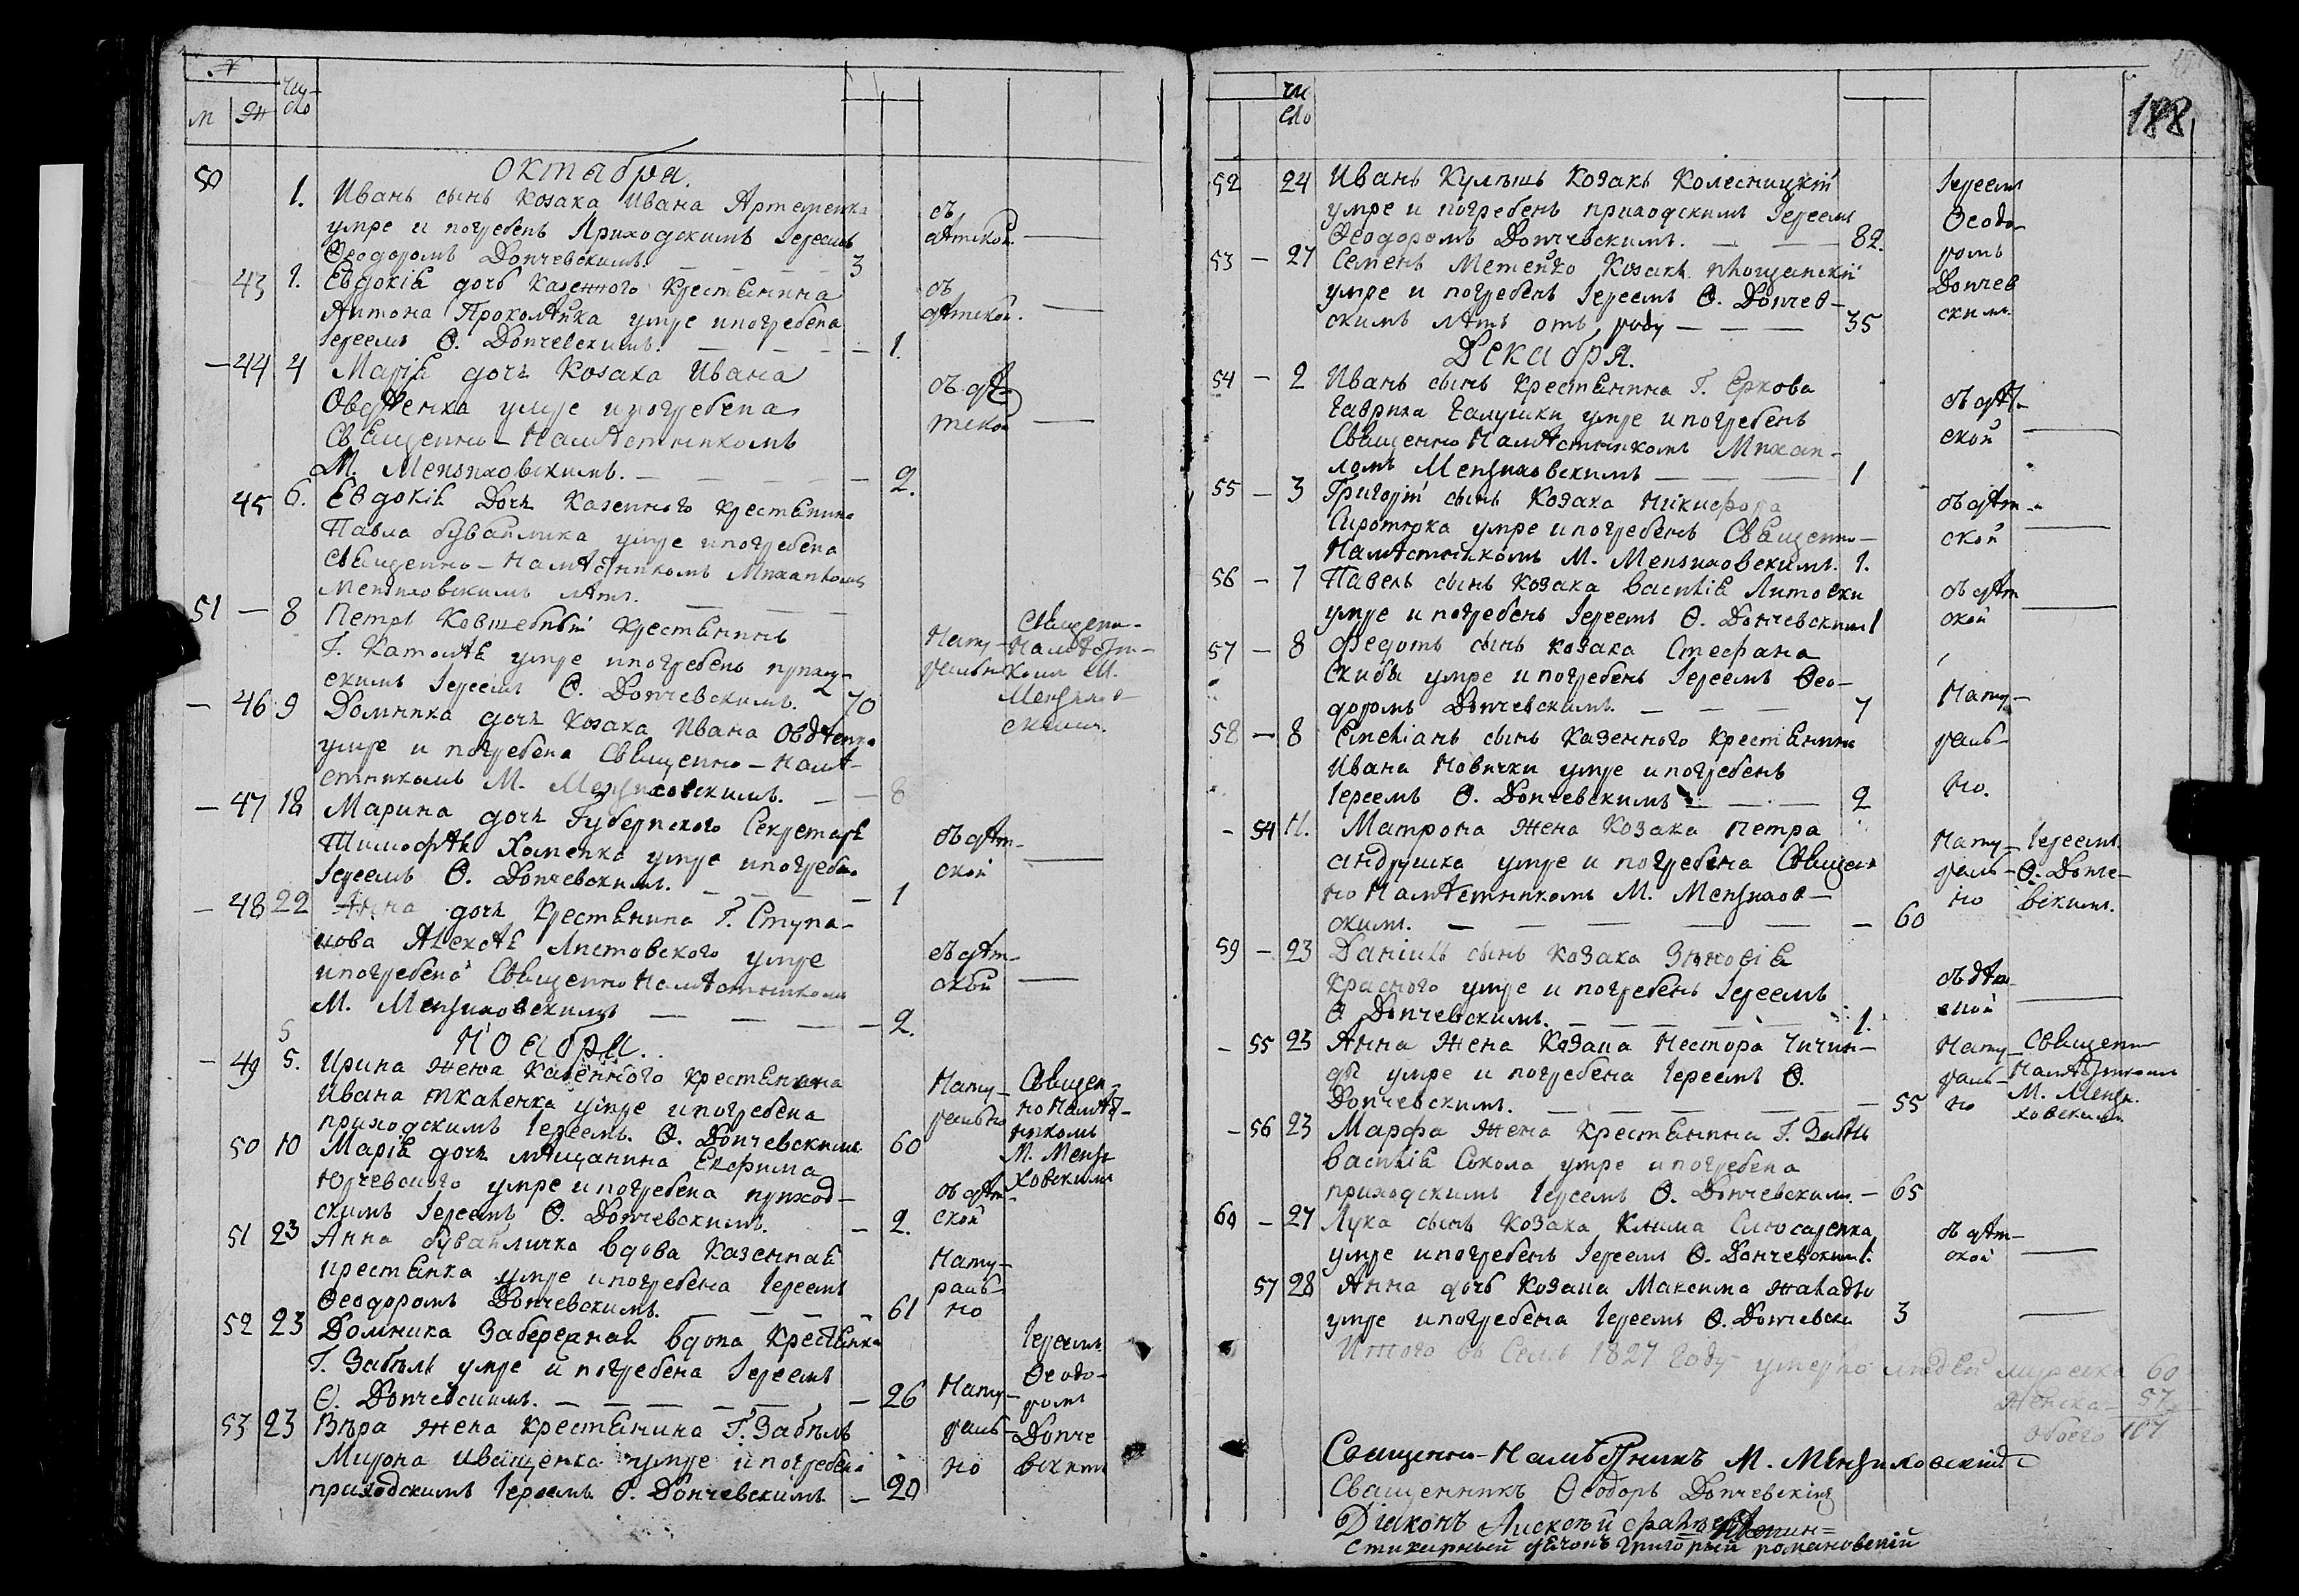 М Ж Чи-
сло
Октабра.
50 1. Иванъ сынъ козака Ивана Артеменка
умре и погребенъ Приходскимъ Іереемъ
Ѳеодоромъ Дончевскимъ. — — — — 3
съ
дѣтской. —
43 1. Евдокіѣ дочь казенного Крестѣнина
Антона Прокопѣйка умре и погребена
Іереемъ Ѳ. Дончевскимъ. — — — — 1.
съ
дѣтской. —
— 44 4 Маріѣ дочь Козака Ивана
Овдѣенка умре и погребена
Свѣщенно-Намѣстникомъ
М. Мензиховскимъ. — — — — 2.
съ дѣ-
тской —
45 6. Евдокіѣ Дочь Казенного Крестѣнина
Павла бувайлика умре и погребена
Свѣщенно-Намѣстникомъ Михаиломъ
Мензиховскимъ лѣтъ. — — —
51 — 8 Петръ Крестѣнинъ
Г. умре и погребенъ приход-
скимъ Іереемъ Ѳ. Дончевскимъ. 70
Нату-
рально
Свѣщенн-
Намѣст-
комъ М.
Мензихов-
скимъ.
— 46 9 Домника дочь Козака Ивана Овдѣенка
умре и погребена Свѣщенно-Намѣ-
стникомъ М. Мензиховскимъ. — — 8
— 47 18 Марина дочь Губернского Секретарѣ
Тимофѣѣ Хоменка умре и погребена
Іереемъ Ѳ. Дончевскимъ. — — — 1
съ дѣт-
ской —
— 48 22 Анна дочь Крестѣнина Г. Ступа-
кова Алексѣѣ Листовского умре
и погребена Свѣщенно Намѣстникомъ
М. Мензиховскимъ — — — — 2.
съ дѣт-
ской —
5
Ноабра.
— 49 5. Ирина жена Казенного Крестѣнина
Ивана Ткаченка умре и погребена
приходскимъ Іереемъ. Ѳ. Дончевскимъ 60
Нату-
рально
Свѣщен-
но Намѣст-
никомъ
М. Мензи-
ховскимъ
50 10 Маріѣ дочь мѣщанина Ефима
Юрчевского умре и погребена приход-
скимъ Іереемъ Ѳ. Дончевскимъ. — 2.
съ дѣт-
ской
51 23 Анна бувайличка вдова Казеннаѣ
крестѣнка умре и погребена Іереемъ
Ѳеодоромъ Дончевскимъ. — — — — 61
Нату-
раль-
но
52 23 Домника Забережнаѣ вдова Крестѣнка
Г. Забѣлъ умре и погребена Іереемъ
Ѳ. Дончевскимъ. — — — — — 26
53 23 Вѣра жена Крестѣнина Г. Забѣлъ
Мирона Иващенка умре и погребена
приходскимъ Іереемъ Ѳ. Дончевскимъ — 20
Нату-
раль-
но
Іереемъ
Ѳеодо-
ромъ
Донче
вскимъ
188
чи
сло
52 24 Иванъ Кулѣшъ Козакъ Колесницкій
умре и погребенъ приходскимъ Іереемъ
Ѳеодоромъ Дончевскимъ. — — 82.
53 — 27 Семенъ Метейко Козакъ
умре и погребенъ Іереемъ Ѳ. Дончев-
скимъ лѣтъ отъ роду — — — 35
Іереемъ
Ѳеодо-
ромъ
Дончев
скимъ.
Декабря.
54 — 2 Иванъ сынъ Крестѣнина Г. Еркова
Гаврила Галушки умре и погребенъ
Свѣщенно Намѣстникомъ Михаи-
ломъ Мензиховскимъ — — — 1
съ дѣт-
ской —
55 — 3 Григорій сынъ Козака Никифора
Сиротюка умре и погребенъ Свѣщенно-
Намѣстникомъ М. Мензиховскимъ. 1.
съ дѣт-
ской —
56 — 7 Павелъ сынъ Козака Василіѣ Литовки
умре и погребенъ Іереемъ Ѳ. Дончевскимъ 1
съ дѣт
ской —
57 — 8 Федотъ сынъ козака Стефана
Скибы умре и погребенъ Іереемъ Ѳео-
доромъ Дончевскимъ. — — — 7
58 — 8 Емеліанъ сынъ Казенного Крестѣнина
Ивана Новички умре и погребенъ
Іереемъ Ѳ. Дончевскимъ — — — 2
Нату-
раль-
но.
— 54 11. Матрона Жена Козака Петра
Андрушка умре и погребена Свѣщен-
но Намѣстникомъ М. Мензихов-
скимъ. — — — — — — 60
Нату-
раль-
но
Іереемъ
Ѳ. Донче-
вскимъ.
59 — 23 Даніилъ сынъ Козака Зѣновіѣ
Красного умре и погребенъ Іереемъ
Ѳ Дончевскимъ. — — — — — 1.
съ дѣт
ской —
— 55 23 Анна Жена Козака Нестора Чичин-
ды умре и погребена Іереемъ Ѳ.
Дончевскимъ. — — — — — 55
Нату-
раль-
но
Свѣщенн-
Намѣстникомъ
М. Мензи-
ховскимъ
— 56 23 Марфа Жена Крестѣнина Г. Забѣлъ
Василіѣ Сокола умре и погребена
приходскимъ Іереемъ Ѳ. Дончевскимъ — 65
60 — 27 Лука сынъ Козака Клима Слюсаренка
умре и погребенъ Іереемъ Ѳ. Дончевскимъ 1.
съ дѣт-
ской —
57 28 Анна дочь Козака Максима
умре и погребена Іереемъ Ѳ. Дончевски 3
—
Итого въ Семъ 1827 году умерло людей мужеска 60
женска — 57
обоего 107
Священно-Намѣстникъ М. Мензиховскій
Священникъ Ѳеодоръ Дончевскій
Діаконъ Алексѣй
стихарный дячокъ Григорий романовскій